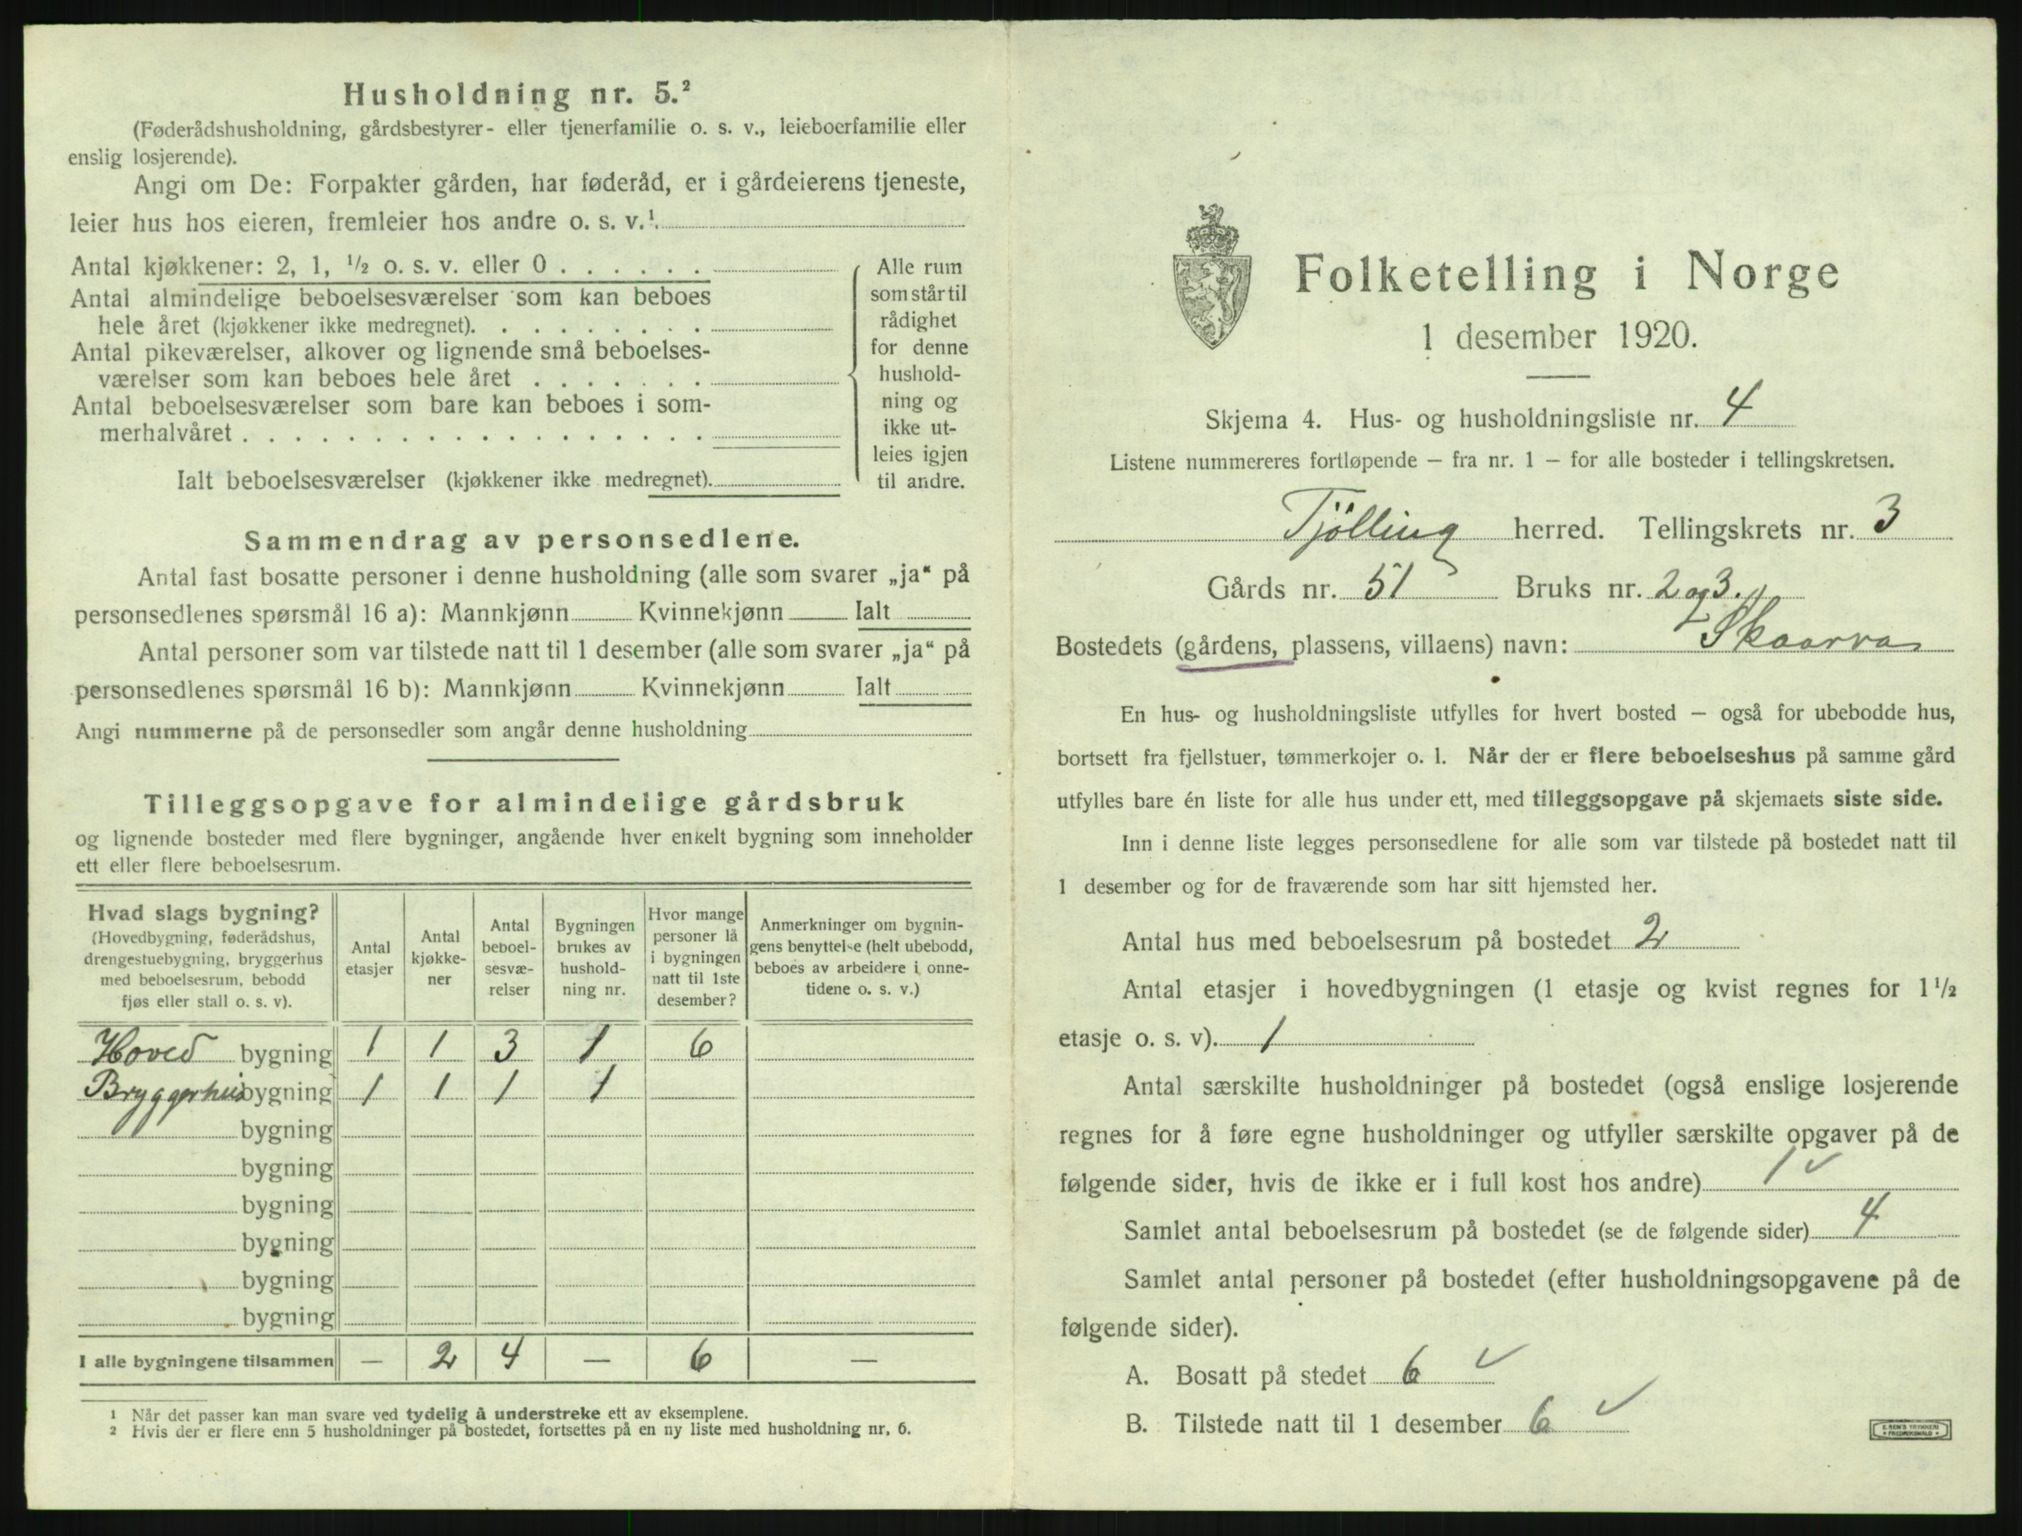 Husholdning nr. 5.²
(Føderådshusholdning, gårdsbestyrer- eller tjenerfamilie o. s. v., leieboerfamilie eller
enslig losjerende).
Angi om De: Forpakter gården, har føderåd, er i gårdeierens tjeneste,
leier hus hos eieren, fremleier hos andre o. s. v.¹.
Antal kjøkkener: 2, 1, ½ o. s. v. eller 0 . . . . . .
Antal almindelige beboelsesværelser som kan beboes
hele året (kjøkkener ikke medregnet). . . . . . . . .
Antal pikeværelser, alkover og lignende små beboelses-
værelser som kan beboes hele året . . . . . . .
Antal beboelsesværelser som bare kan beboes i som-
merhalvåret . . . . . . . . . . . . . . . . . .
Ialt beboelsesværelser (kjøkkener ikke medregnet).
Alle rum
som står til
rådighet
for denne
hushold-
ning og
ikke ut-
leies igjen
til andre.
Sammendrag av personsedlene.
Antal fast bosatte personer i denne husholdning (alle som svarer „ja“ på
personsedlenes spørsmål 16 a): Mannkjønn Kvinnekjønn Ialt
Antal personer som var tilstede natt til 1 desember (alle som svarer „ja“ på
personsedlenes spørsmål 16 b): Mannkjønn Kvinnekjønn Ialt
Angi nummerne på de personsedler som angår denne husholdning
Tilleggsopgave for almindelige gårdsbruk
og lignende bosteder med flere bygninger, angående hver enkelt bygning som inneholder
ett eller flere beboelsesrum.
Hvad slags bygning?
(Hovedbygning, føderådshus,
drengestuebygning, bryggerhus
med beboelsesrum, bebodd
fjøs eller stall o. s. v).
Antal
etasjer
Antal
kjøkke-
ner
Antal
beboel-
sesvæ-
relser
Bygningen
brukes av
hushold-
ning nr.
Hvor mange
personer lå
i bygningen
natt til 1ste
desember?
Anmerkninger om bygnin-
gens benyttelse (helt ubebodd,
beboes av arbeidere i onne-
tidene o. s. v.)
Hoved bygning 1 1 3 1 6
Bryggerhus bygning 1 1 1 1
bygning
bygning
bygning
bygning
bygning
bygning
I alle bygningene tilsammen — 2 4 — 6 —
¹ Når det passer kan man svare ved tydelig å understreke ett av eksemplene.
² Hvis der er flere enn 5 husholdninger på bostedet, fortsettes på en ny liste med husholdning nr. 6.
Folketelling i Norge
1 desember 1920.
Skjema 4. Hus- og husholdningsliste nr. 4
Listene nummereres fortløpende — fra nr. 1 — for alle bosteder i tellingskretsen.
Tjölling herred. Tellingskrets nr. 3
Gårds nr. 51 Bruks nr. 2 og 3.
Bostedets (gårdens, plassens, villaens) navn: Skaarva
En hus- og husholdningsliste utfylles for hvert bosted — også for ubebodde hus,
bortsett fra fjellstuer, tømmerkojer o. l. Når der er flere beboelseshus på samme gård
utfylles bare én liste for alle hus under ett, med tilleggsopgave på skjemaets siste side.
Inn i denne liste legges personsedlene for alle som var tilstede på bostedet natt til
1 desember og for de fraværende som har sitt hjemsted her.
Antal hus med beboelsesrum på bostedet 2
Antal etasjer i hovedbygningen (1 etasje og kvist regnes for 1½
etasje o. s. v). 1
Antal særskilte husholdninger på bostedet (også enslige losjerende
regnes for å føre egne husholdninger og utfyller særskilte opgaver på de
følgende sider, hvis de ikke er i full kost hos andre) 1 ✓
Samlet antal beboelsesrum på bostedet (se de følgende sider) 4
Samlet antal personer på bostedet (efter husholdningsopgavene på de
følgende sider).
A. Bosatt på stedet 6 ✓
B. Tilstede natt til 1 desember 6 ✓